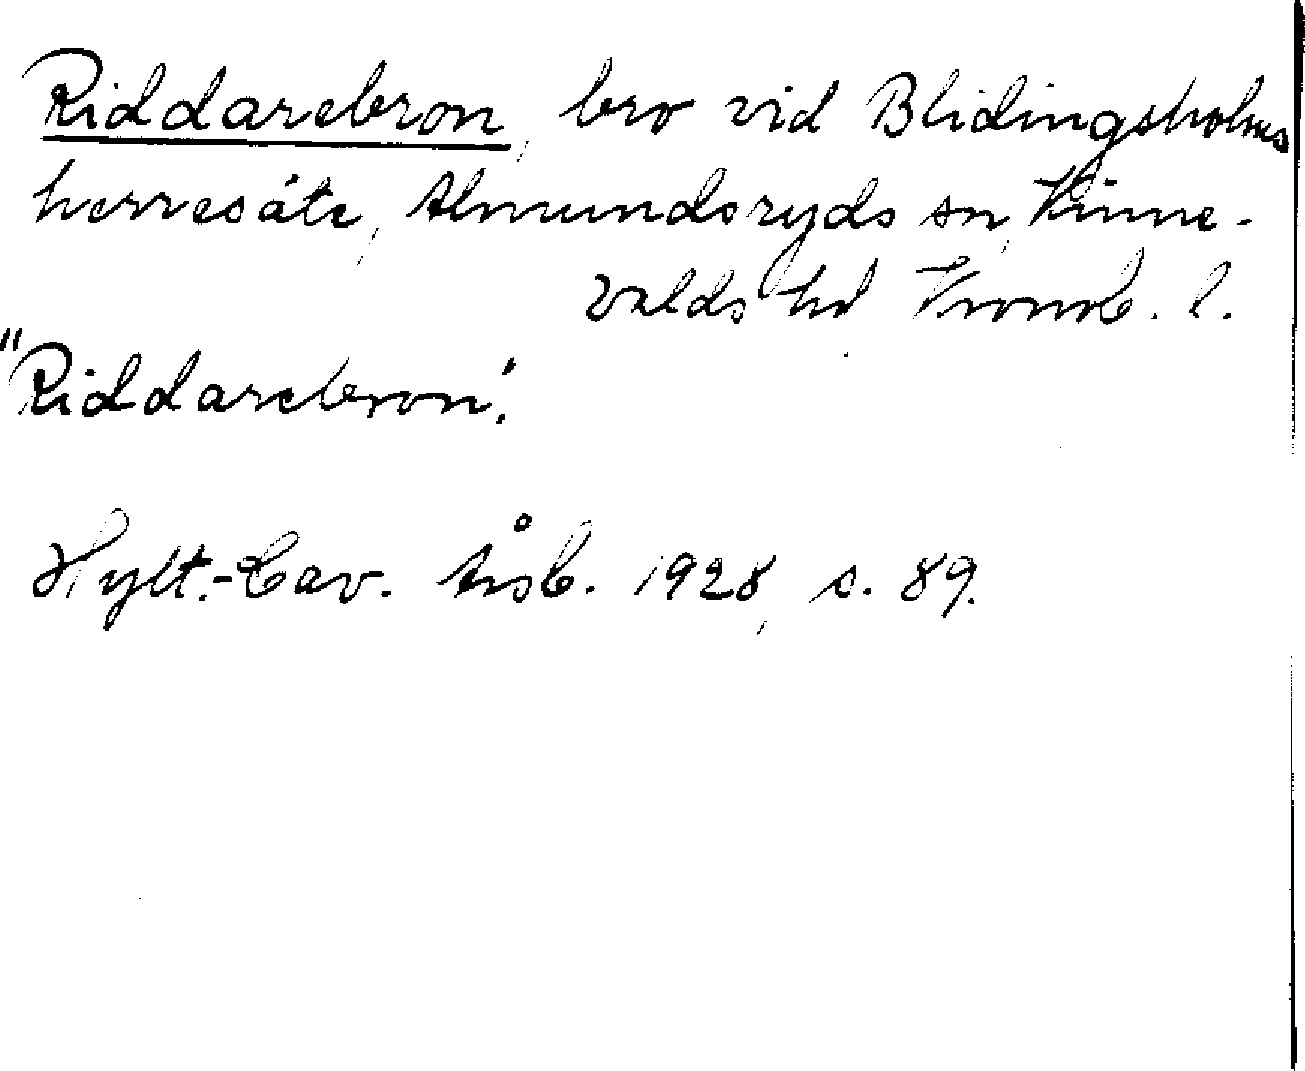 Riddarebron, bro vid Blidingsholms
herresäte, Almundsryds sn, Kinne-
valds hd Kronob. l.
"Riddarebron".
Hylt.-Cav. Årsb. 1928, s. 89.